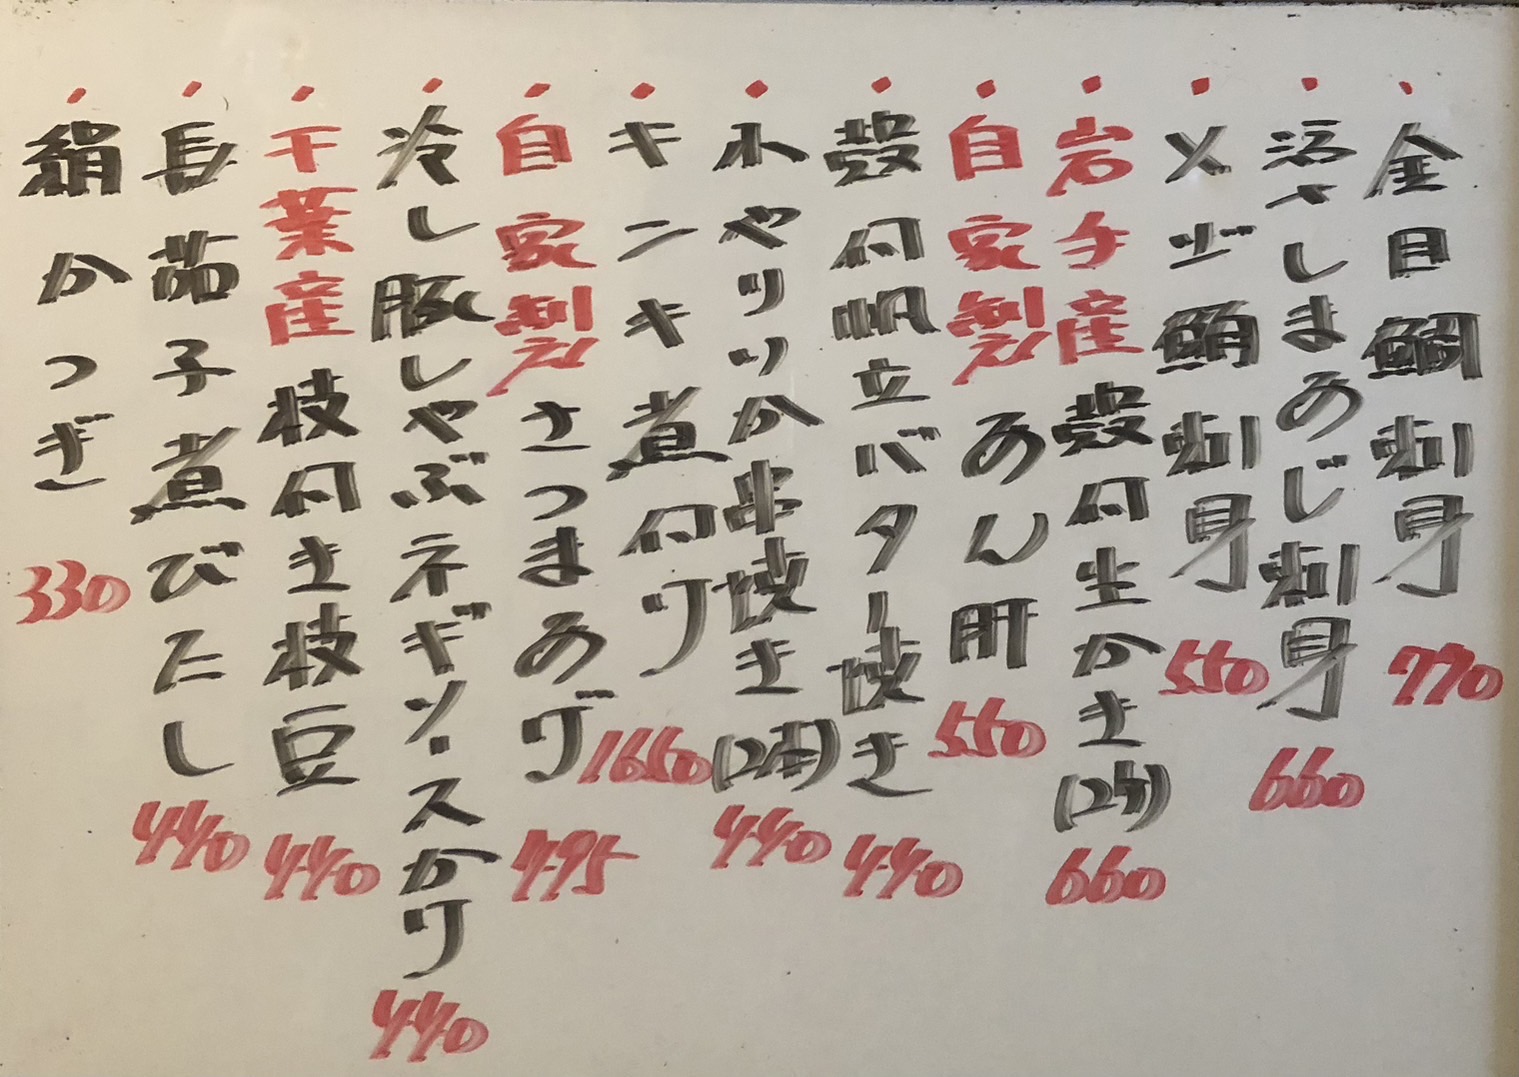 ・金目鯛刺身 770
・活きしまあじ刺身 660
・メジ鮪刺身 550
・岩手産殻付生かき(2ケ) 660
・自家製あん肝 550
・殻付帆立バター焼き 440
・小やりいか串焼き(2本) 440
・キンキ煮付け 1650
・自家製さつまあげ 495
・冷し豚しゃぶネギソースかけ 440
・千葉産枝付き枝豆 440
・長茄子煮びたし 440
・絹かつぎ 330